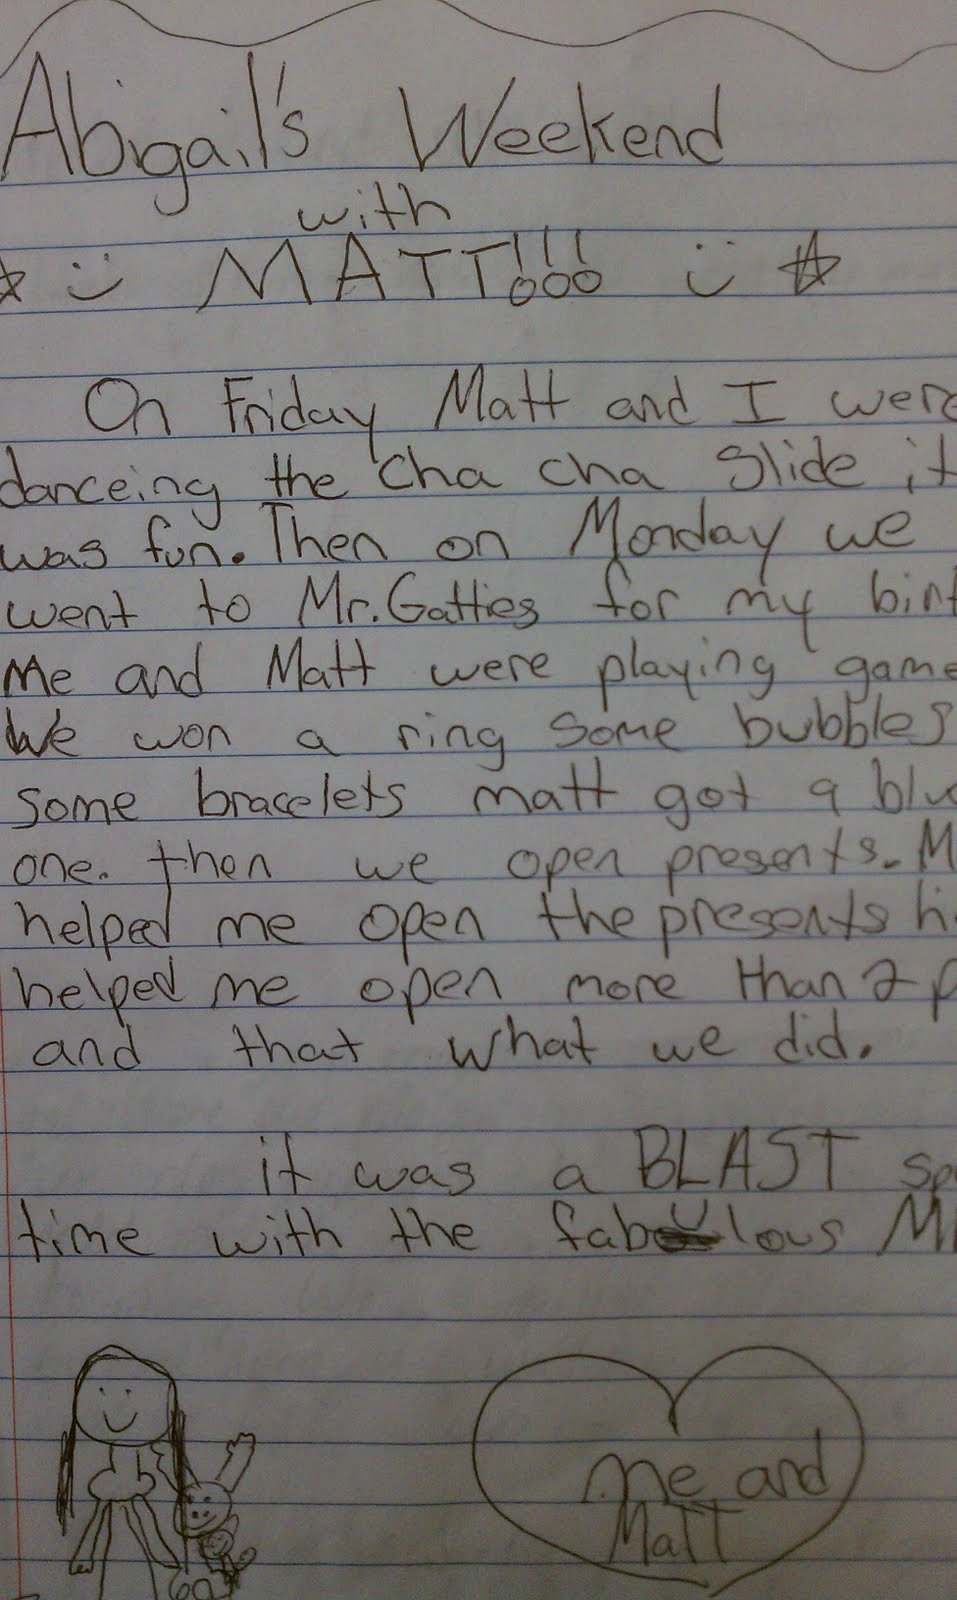 Abigail's Weekend
with
MATT!!!
On Friday Matt and I were
danceing the Cha cha Slide it
was fun. Then on Monday we
went to Mr. Gatties for my birt
Me and Matt were playing game
We won a ring some bubbles
some bracelets matt got a blu
one. then we open presents. M
helped me open the presents h
helped me open more than 2 p
and that what we did.
it was a BLAST sp
time with the fabulous M
me and
Matt